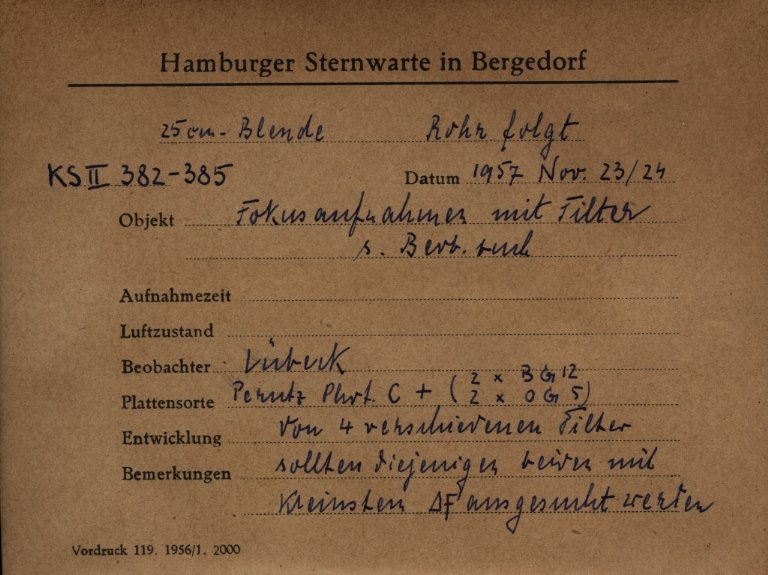 Hamburger Sternwarte in Bergedorf
25cm-Blende Rohr folgt
KS II 382-385 Datum 1957 Nov. 23/24
Objekt Fokusaufnahmen mit Filter
s. Beob. buch
Aufnahmezeit
Luftzustand
Beobachter Lübeck
Plattensorte Perutz Phot. C + ( 2 x BG 12
2 x OG 5 )
Entwicklung Von 4 verschiedenen Filter
Bemerkungen sollten diejenigen beiden mit
kleinsten ΔF ausgesucht werden
Vordruck 119. 1956/1. 2000